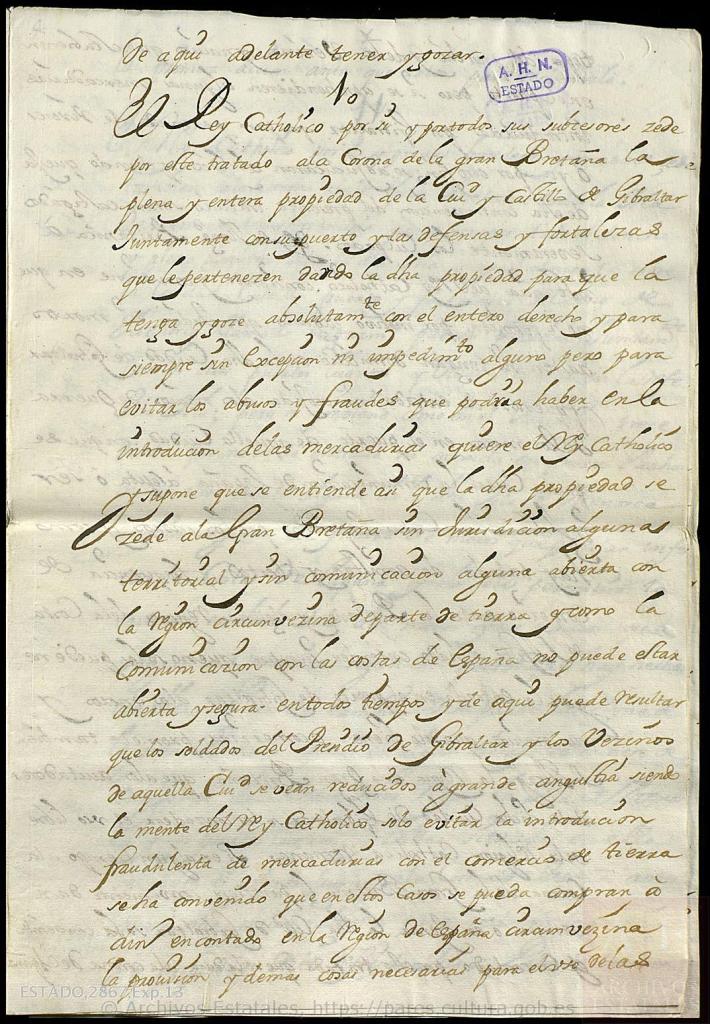 De aqui adelante tener y gozar.
A. H. N.
ESTADO
10
El Rey Catholico por si y por todos sus subcesores zede
por este tratado a la Corona de la gran Bretaña la
plena y entera propiedad de la Ciud y Castillo de Gibraltar
Juntamente con su puerto y las defensas y fortalezas
que le pertenezen dando la dha propiedad para que la
tenga y goze absolutamte con el entero derecho y para
siempre sin excepcion ni impedimto alguno pero para
evitar los abusos y fraudes que podria haber en la
introducion de las mercadurias quiere el Rey Catholico
y supone que se entiende asi que la dha propiedad se
zede a la Gran Bretaña sin Jurisdicion alguna
territorial y sin comunicacion alguna abierta con
la Region circunvezina de parte de tierra y como la
Comunicazion con las costas de España no puede estar
abierta y segura en todos tiempos y de aqui puede resultar
que los soldados del Presidio de Gibraltar y los Vezinos
de aquella Ciud se vean reducidos à grande angustia siendo
la mente del Rey Catholico solo evitar la introducion
fraudulenta de mercadurias con el comercio de tierra
se ha convenido que en estos Casos se pueda compran à
din en contado en la Region de España circunvezina
la provision y demas cosas necesarias para el uso de las
ESTADO,2867,Exp.13
© Archivos Estatales https://pares.cultura.gob.es